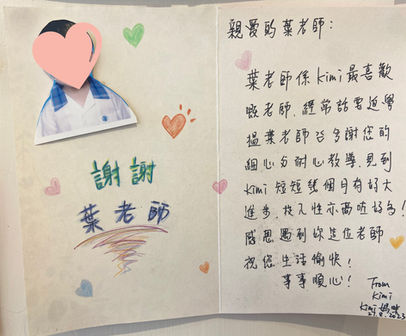 謝謝
葉老師
親愛的葉老師：
葉老師係kimi最喜歡
嘅老師，經常話要返學
搵葉老師，多謝您的
細心與耐心教導，見到
Kimi 短短幾個月有好大
進步，投入性亦高咗好多！
感恩遇到您這位老師
祝您生活愉快！
事事順心！
From
Kimi
Kimi 媽咪